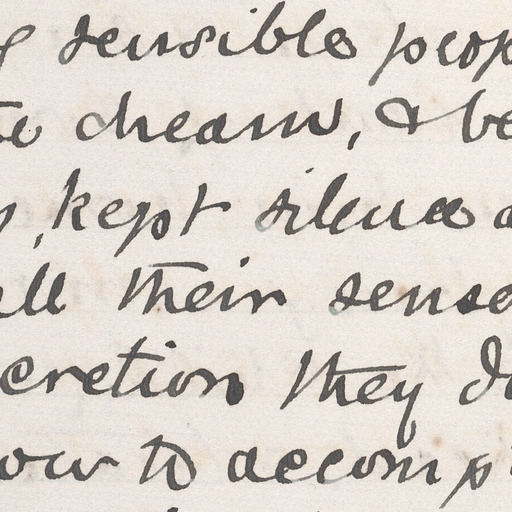 sensible peop
to dream, & be
, kept silence a
all their sense
cretion they do
ow to accomp